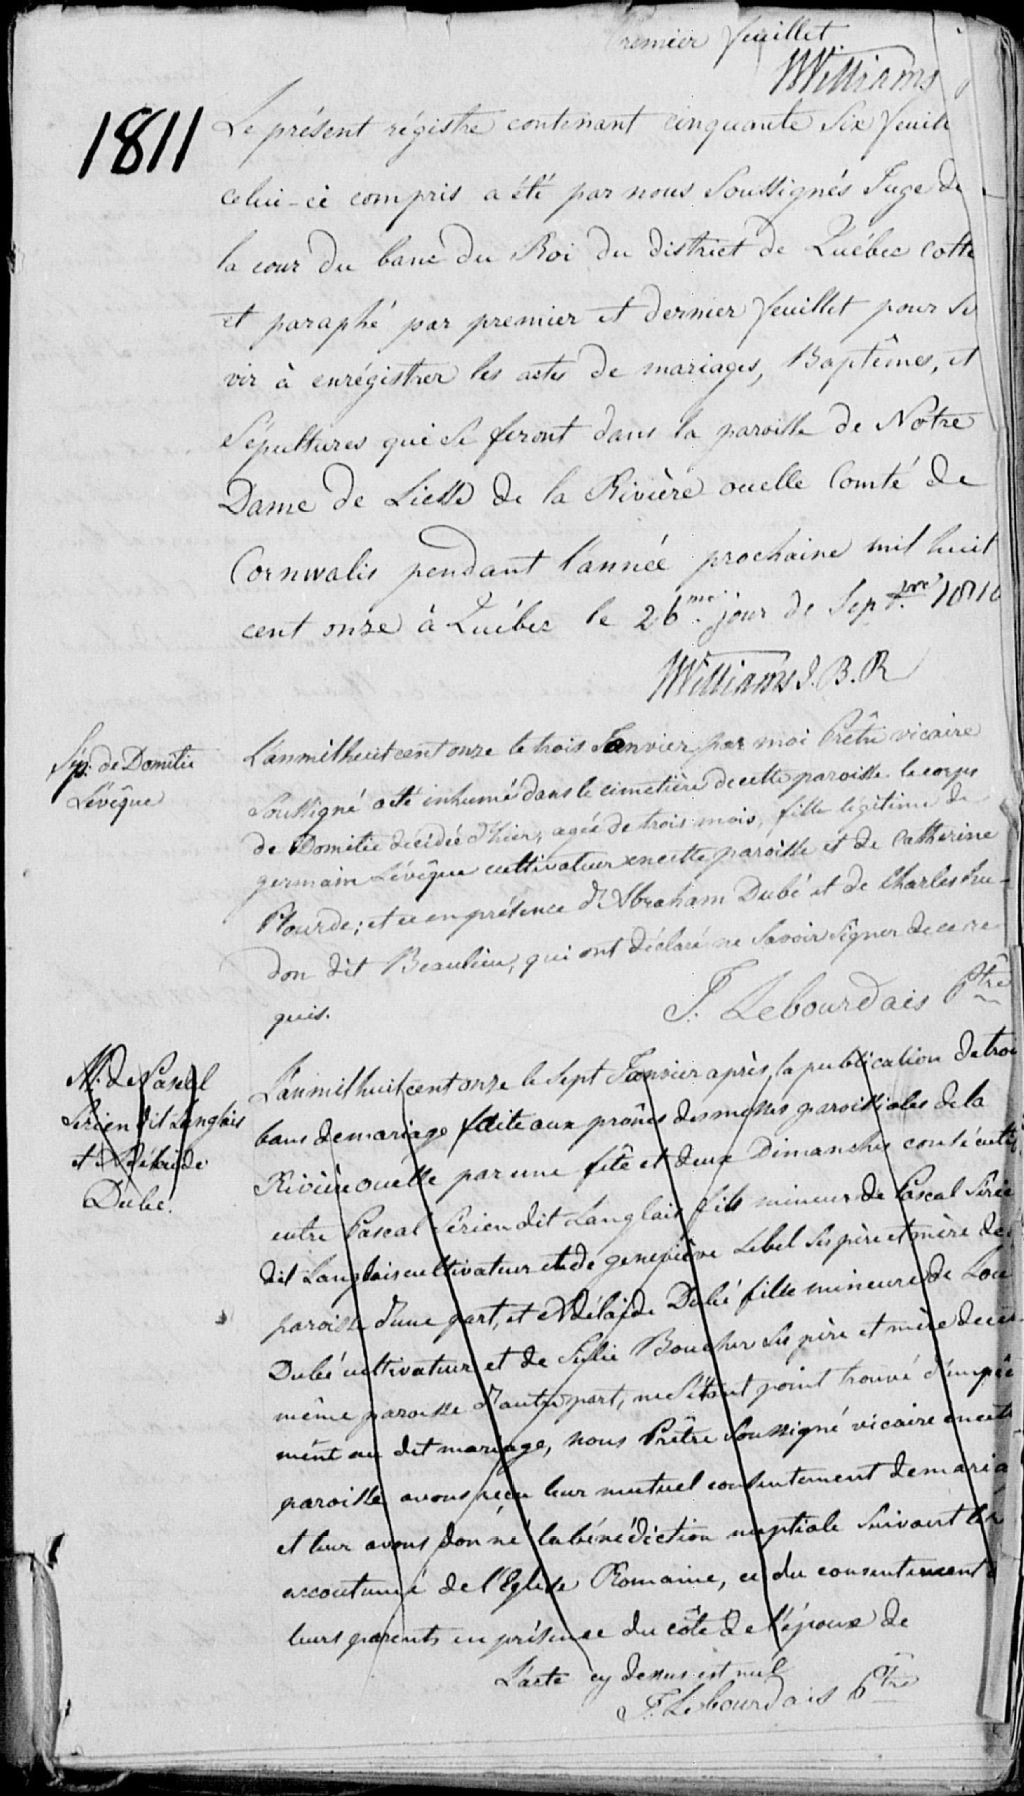 Premier feuillet
Williams
1811
Le présent régistre contenant cinquante Six feuill
celui-ci compris a été par nous Soussignés Juge de
la cour du banc du Roi du district de Québec cotté
et paraphé par premier et dernier feuillet pour Se
vir à enrégistrer les actes de mariages, Baptêmes, et
Sépultures qui Se feront dans la paroisse de Notre
Dame de Liesse de la Rivière ouelle Comté de
Cornwalis pendant l'année prochaine mil huit
cent onze à Québec le 26.me jour de Sept.bre 1810
Williams J.B.R
Sép. de Domitie
Lévêque
L'an mil huit cent onze le trois Janvier par moi Prêtre vicaire
Soussigné a été inhumé dans le cimetière de cette paroisse le corps
de Domitie décédée d'hier, agée de trois mois, fille légitime de
germain Lévêque cultivateur en cette paroisse et de Catherine
Plourde; et ce en présence d'Abraham Dubé et de Charles Hu-
don dit Beaulieu, qui ont déclaré ne Savoir Signer de ce re
quis.
F. Lebourdais Ptre
M. de Pascal
Sérien dit Langlais
et
Dubé.
L'an mil huit cent onze le Sept Janvier après la publication de troi
bans de mariage faite aux prônes des messes paroissiales de la
Rivière ouelle par une fête et deux Dimanches consécutifs
entre Pascal Sérien dit Langlais fils mineur de Pascal Sérien
dit Langlais cultivateur et de geneviève Lebel Ses père et mère de
paroisse d'une part, et Adélaïde Dubé fille mineure de Lou
Dubé cultivateur et de Boucher Ses père et mère de cet
même paroisse d'autre part, ne S'étant point trouvé d'empêc
ment au dit mariage, nous Prêtre Soussigné vicaire en cett
paroisse avons reçu leur mutuel consentement de maria
et leur avons donné la bénédiction nuptiale Suivant la
accoutumé de l'Eglise Romaine, ce du consentement
leurs parents en présence du côté de l'époux de
L'acte cy dessus est nul
F. Lebourdais Ptre